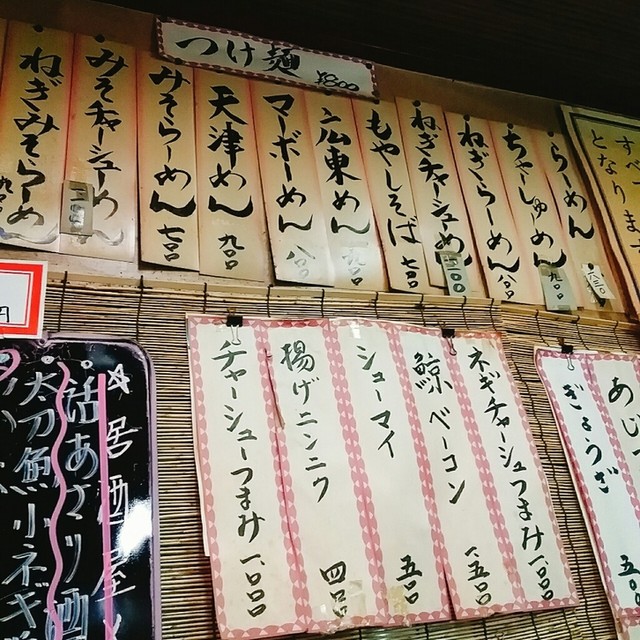 つけ麺 ¥800
らーめん 六五〇
ちゃーしゅーめん
ねぎらーめん 八〇〇
ねぎチャーシューめん
もやしそば 七〇〇
広東めん 九〇〇
マーボーめん 八〇〇
天津めん 九〇〇
みそらーめん 七〇〇
みそチャーシューめん
ねぎみそらーめん 九〇〇
となります
ネギチャーシューつまみ 一、〇〇〇
鯨ベーコン 一、五〇〇
シューマイ 五〇〇
揚げニンニク 四〇〇
チャーシューつまみ 一、〇〇〇
ぎょうざ
円
居酒屋
活あさり酒
太刀魚小ネギ